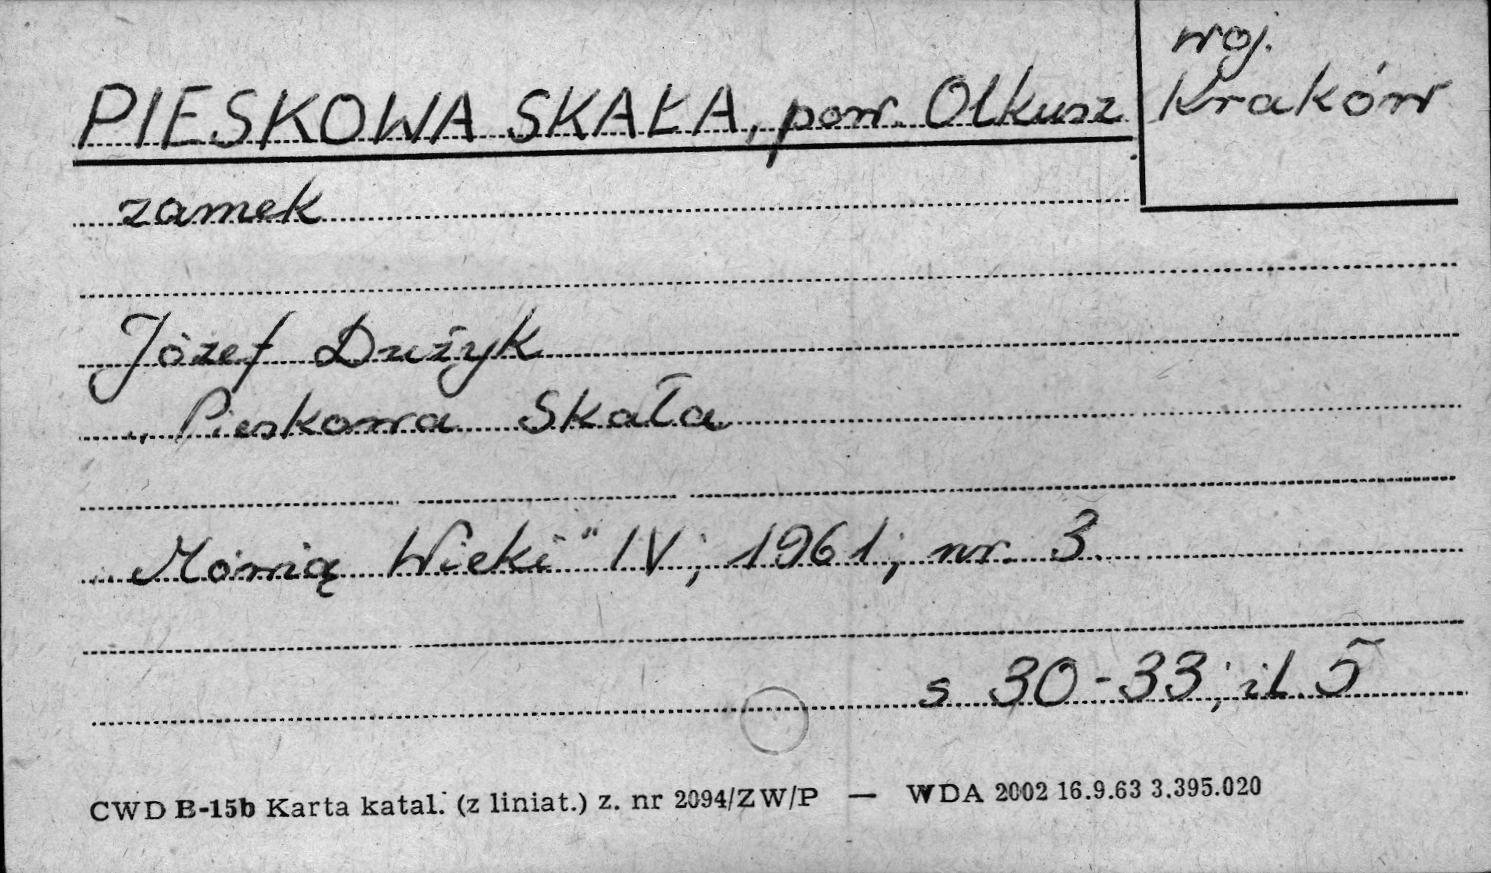 woj.
Kraków
PIESKOWA SKAŁA, pow. Olkusz
zamek
Józef Dużyk
„Pieskowa Skała
„Mówią Wieki" IV; 1961; nr. 3.
s 30-33; il. 5
CWD B-15b Karta katal. (z liniat.) z. nr 2094/ZW/P — WDA 2002 16.9.63 3.395.020